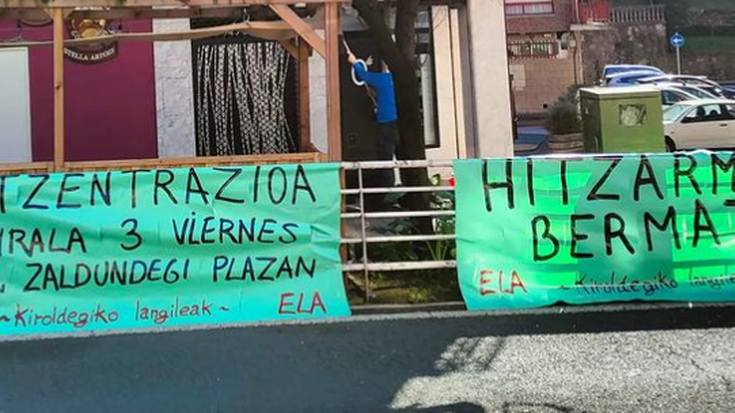 STELLA ARTOIS
TZENTRAZIOA
IRALA 3 VIERNES
ZALDUNDEGI PLAZAN
~Kiroldegiko langileak~ ELA
HITZARM
BERMAT
ELA ~Kiroldegiko langile